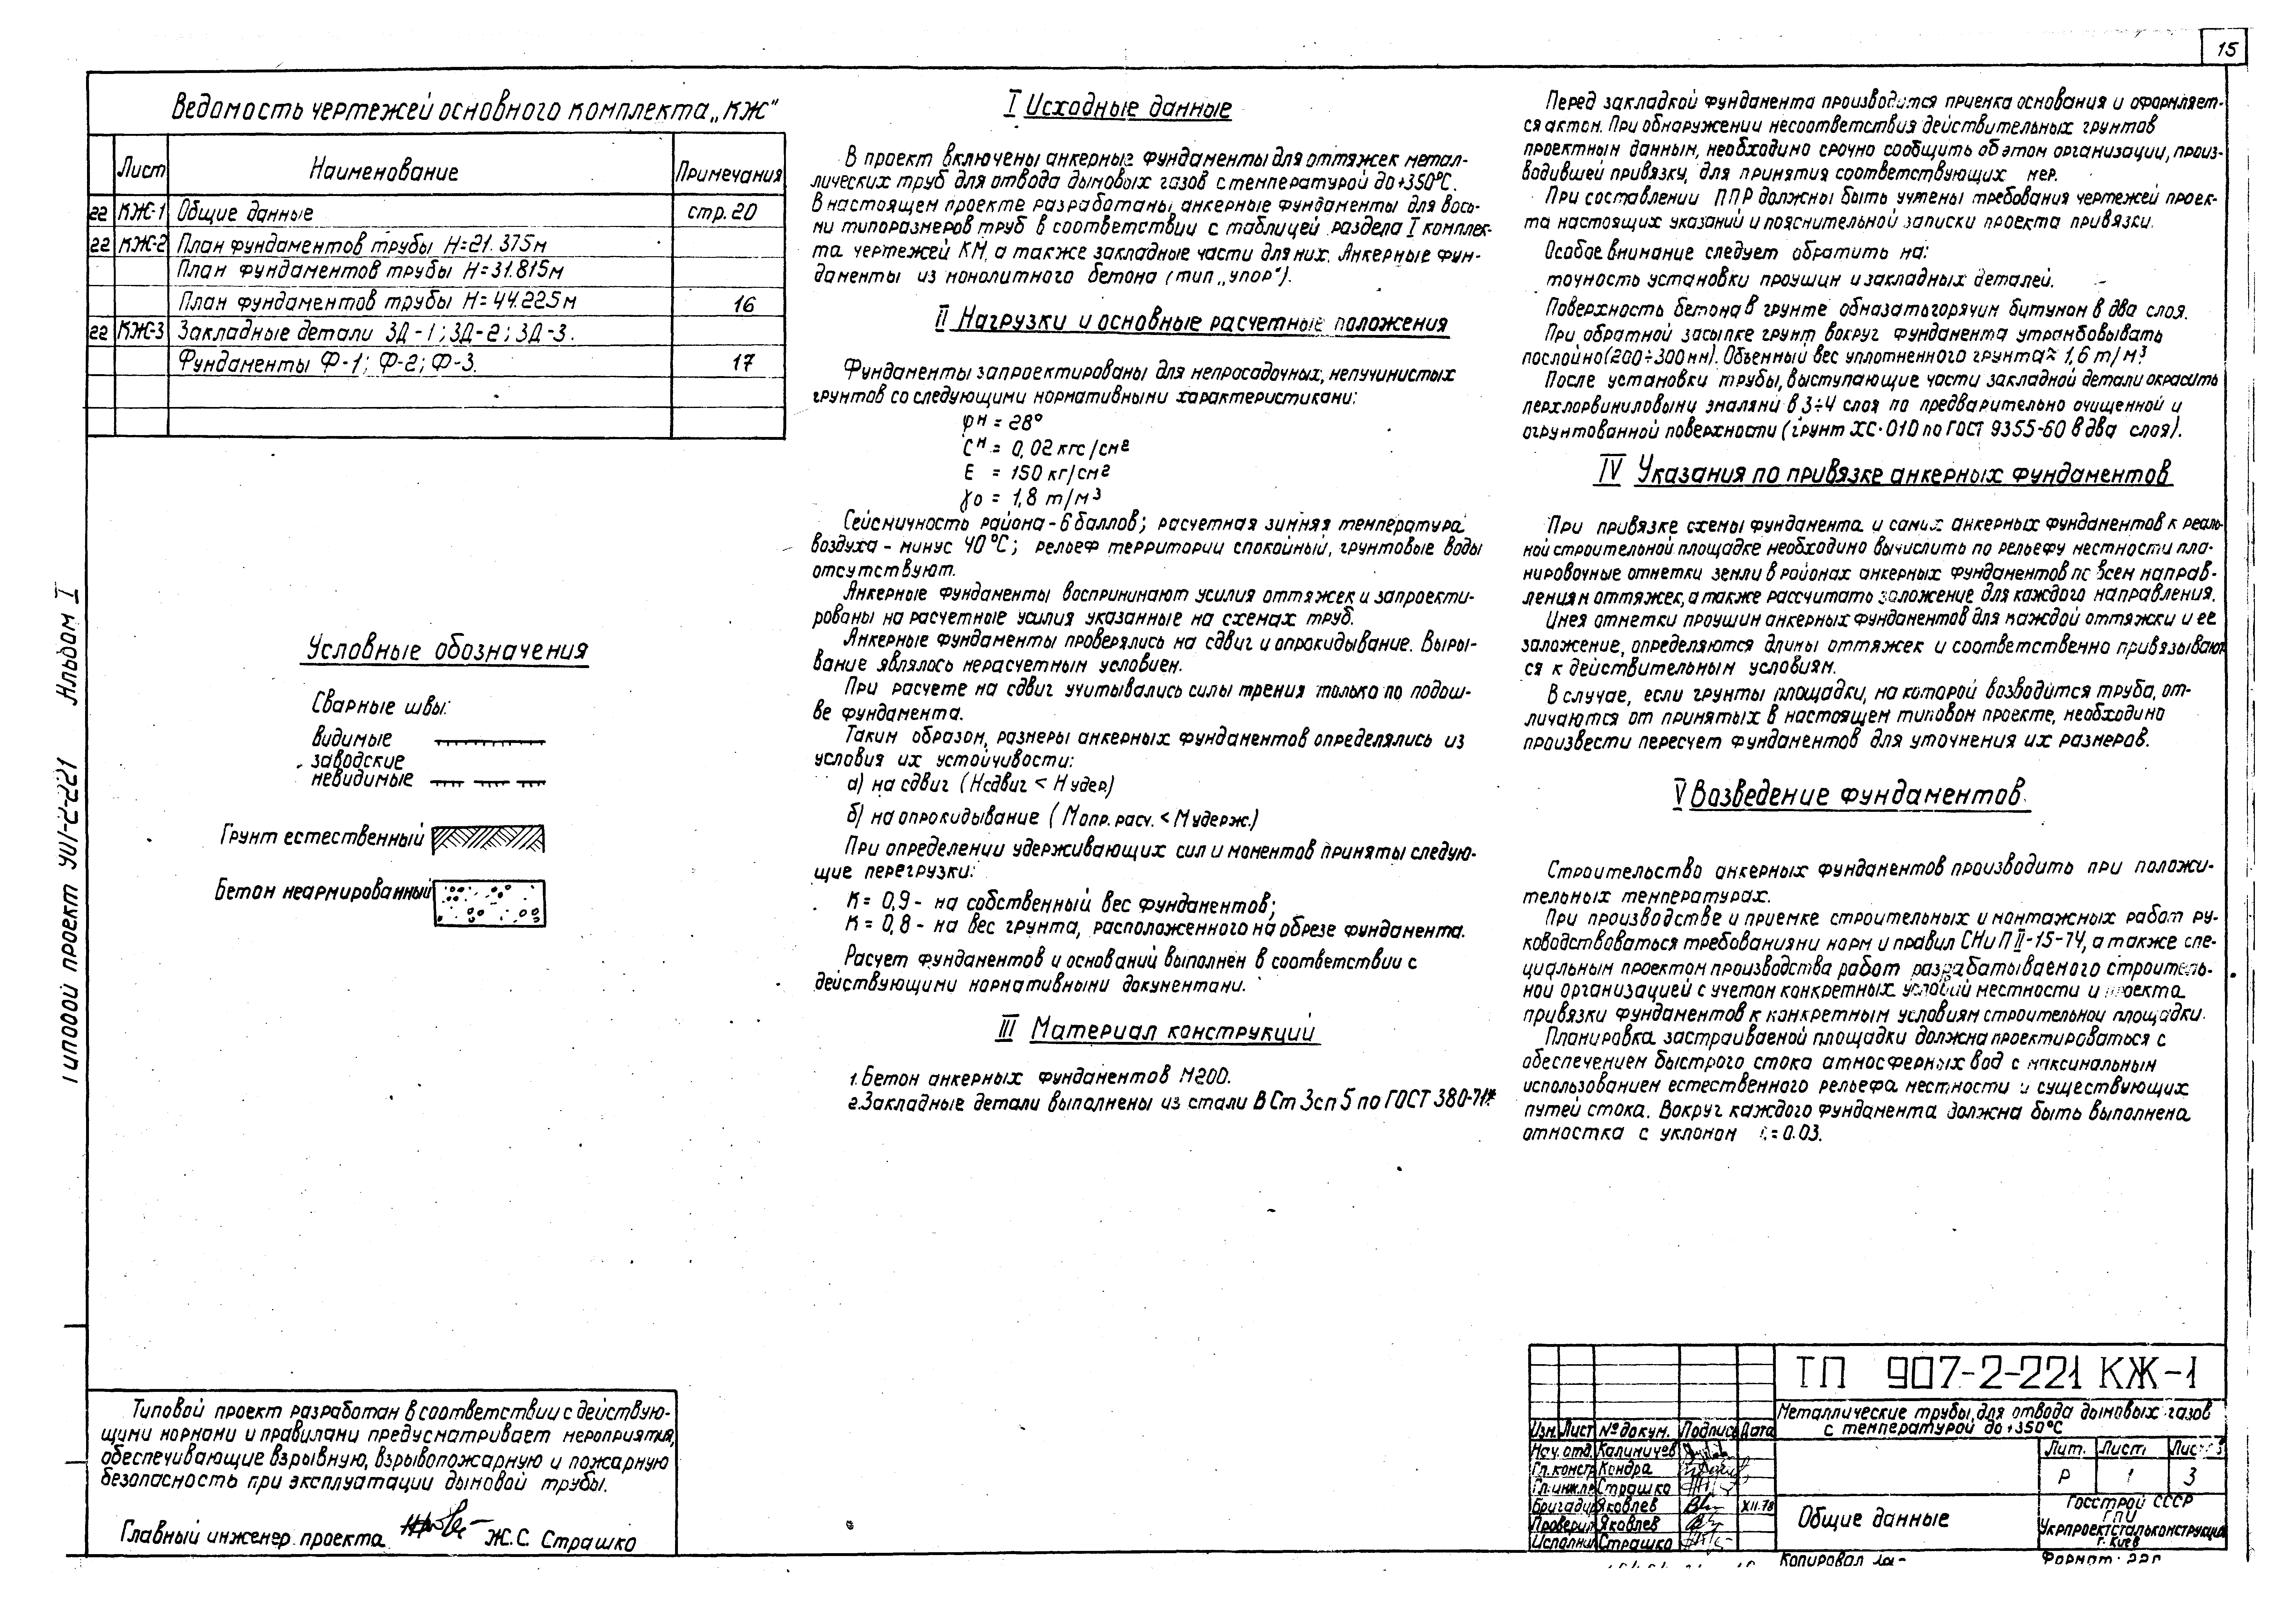 15
Ведомость чертежей основного комплекта „КЖ"
Лист Наименование Примечания
22 КЖ-1 Общие данные стр. 20
22 КЖ-2 План фундаментов трубы Н=21.375м
План фундаментов трубы Н=31.815м
План фундаментов трубы Н=44.225м 16
22 КЖ-3 Закладные детали ЗД-1; ЗД-2; ЗД-3.
Фундаменты Ф-1; Ф-2; Ф-3. 17
Условные обозначения
Сварные швы:
видимые
заводские
невидимые
Грунт естественный
Бетон неармированный
Типовой проект 907-2-221 Альбом I
Типовой проект разработан в соответствии с действую-
щими нормами и правилами предусматривает мероприятия,
обеспечивающие взрывную, взрывопожарную и пожарную
безопасность при эксплуатации дымовой трубы.
Главный инженер проекта Ж.С. Страшко
I Исходные данные
В проект включены анкерные фундаменты для оттяжек метал-
лических труб для отвода дымовых газов с температурой до +350°С.
В настоящем проекте разработаны анкерные фундаменты для вось-
ми типоразмеров труб в соответствии с таблицей раздела I комплек-
та чертежей КМ, а также закладные части для них. Анкерные фун-
даменты из монолитного бетона (тип „упор").
II Нагрузки и основные расчетные положения
Фундаменты запроектированы для непросадочных, непучинистых
грунтов со следующими нормативными характеристиками:
φн = 28°
Сн = 0,02 кгс/см2
Е = 150 кг/см2
γо = 1,8 т/м3
Сейсмичность района - 6 баллов; расчетная зимняя температура
воздуха - минус 40°С; рельеф территории спокойный, грунтовые воды
отсутствуют.
Анкерные фундаменты воспринимают усилия оттяжек и запроекти-
рованы на расчетные усилия указанные на схемах труб.
Анкерные фундаменты проверялись на сдвиг и опрокидывание. Выры-
вание являлось нерасчетным условием.
При расчете на сдвиг учитывались силы трения только по подош-
ве фундамента.
Таким образом, размеры анкерных фундаментов определялись из
условия их устойчивости:
а) на сдвиг (Нсдвиг < Нудер)
б) на опрокидывание (Мопр. расч. < Мудерж.)
При определении удерживающих сил и моментов приняты следую-
щие перегрузки:
К = 0,9 - на собственный вес фундаментов;
К = 0,8 - на вес грунта, расположенного на обрезе фундамента.
Расчет фундаментов и оснований выполнен в соответствии с
действующими нормативными документами.
III Материал конструкций
1. Бетон анкерных фундаментов М200.
2. Закладные детали выполнены из стали ВСт 3сп 5 по ГОСТ 380-71*
Перед закладкой фундамента производится приемка основания и оформляет-
ся актом. При обнаружении несоответствия действительных грунтов
проектным данным, необходимо срочно сообщить об этом организации, произ-
водившей привязку, для принятия соответствующих мер.
При составлении ППР должны быть учтены требования чертежей проек-
та настоящих указаний и пояснительной записки проекта привязки.
Особое внимание следует обратить на:
точность установки проушин и закладных деталей.
Поверхность бетона в грунте обмазать горячим битумом в два слоя.
При обратной засыпке грунт вокруг фундамента утрамбовывать
послойно (200÷300 мм). Объемный вес уплотненного грунта ≈ 1,6 т/м3
После установки трубы, выступающие части закладной детали окрасить
перхлорвиниловыми эмалями в 3÷4 слоя по предварительно очищенной и
огрунтованной поверхности (грунт ХС-010 по ГОСТ 9355-60 в два слоя).
IV Указания по привязке анкерных фундаментов
При привязке схемы фундамента и самих анкерных фундаментов к реаль-
ной строительной площадке необходимо вычислить по рельефу местности пла-
нировочные отметки земли в районах анкерных фундаментов по всем направ-
лениям оттяжек, а также рассчитать заложение для каждого направления.
Имея отметки проушин анкерных фундаментов для каждой оттяжки и ее
заложение, определяются длины оттяжек и соответственно привязывают-
ся к действительным условиям.
В случае, если грунты площадки, на которой возводится труба, от-
личаются от принятых в настоящем типовом проекте, необходимо
произвести пересчет фундаментов для уточнения их размеров.
V Возведение фундаментов.
Строительство анкерных фундаментов производить при положи-
тельных температурах.
При производстве и приемке строительных и монтажных работ ру-
ководствоваться требованиями норм и правил СНиП II-15-74, а также спе-
циальным проектом производства работ разрабатываемого строитель-
ной организацией с учетом конкретных условий местности и проекта
привязки фундаментов к конкретным условиям строительной площадки.
Планировка застраиваемой площадки должна проектироваться с
обеспечением быстрого стока атмосферных вод с максимальным
использованием естественного рельефа местности и существующих
путей стока. Вокруг каждого фундамента должна быть выполнена
отмостка с уклоном i=0.03.
ТП 907-2-221 КЖ-1
Металлические трубы для отвода дымовых газов
с температурой до +350°С
Изм. Лист № докум. Подпись Дата
Нач. отд. Калиничев
Гл. констр Кондра
Гл. инж. пр Страшко
Бригадир Яковлев XII.78
Проверил Яковлев
Исполнил Страшко
Лит. Лист Листов
Р 1 3
Общие данные
Госстрой СССР
ГПИ
Укрпроектстальконструкция
г. Киев
Копировал Формат 22г